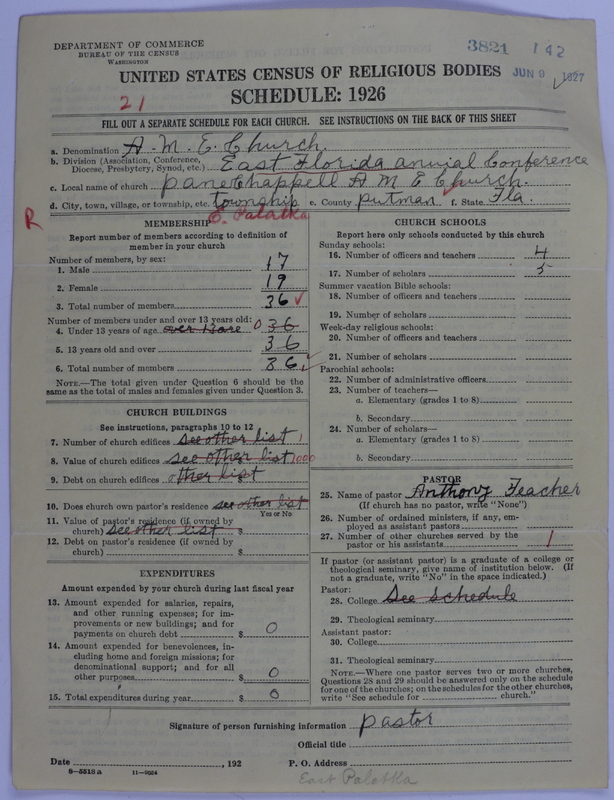 DEPARTMENT OF COMMERCE
BUREAU OF THE CENSUS
WASHINGTON
3821 142
UNITED STATES CENSUS OF RELIGIOUS BODIES
JUN 9 1927
SCHEDULE: 1926
21
FILL OUT A SEPARATE SCHEDULE FOR EACH CHURCH. SEE INSTRUCTIONS ON THE BACK OF THIS SHEET
a. Denomination A. M. E. Church.
b. Division (Association, Conference, Diocese, Presbytery, Synod, etc.) East Florida annual Conference
c. Local name of church pane Chappell A M E Church.
d. City, town, village, or township, etc. township e. County putman f. State Fla.
E. Palatka
R
MEMBERSHIP
Report number of members according to definition of
member in your church
Number of members, by sex:
1. Male 17
2. Female 19
3. Total number of members 36
Number of members under and over 13 years old:
4. Under 13 years of age over 13 are 0 36
5. 13 years old and over 36
6. Total number of members 36
NOTE.—The total given under Question 6 should be the
same as the total of males and females given under Question 3.
CHURCH BUILDINGS
See instructions, paragraphs 10 to 12
7. Number of church edifices see other list 1
8. Value of church edifices see other list 1000
9. Debt on church edifices other list $
10. Does church own pastor's residence see other list
Yes or No
11. Value of pastor's residence (if owned by
church) see other list $
12. Debt on pastor's residence (if owned by
church) $
EXPENDITURES
Amount expended by your church during last fiscal year
13. Amount expended for salaries, repairs,
and other running expenses; for im-
provements or new buildings; and for
payments on church debt $ 0
14. Amount expended for benevolences, in-
cluding home and foreign missions; for
denominational support; and for all
other purposes $ 0
15. Total expenditures during year $ 0
CHURCH SCHOOLS
Report here only schools conducted by this church
Sunday schools:
16. Number of officers and teachers 4
17. Number of scholars 5
Summer vacation Bible schools:
18. Number of officers and teachers
19. Number of scholars
Week-day religious schools:
20. Number of officers and teachers
21. Number of scholars
Parochial schools:
22. Number of administrative officers
23. Number of teachers—
a. Elementary (grades 1 to 8)
b. Secondary
24. Number of scholars—
a. Elementary (grades 1 to 8)
b. Secondary
PASTOR
25. Name of pastor Anthony Feacher
(If church has no pastor, write "None")
26. Number of ordained ministers, if any, em-
ployed as assistant pastors
27. Number of other churches served by the
pastor or his assistants 1
If pastor (or assistant pastor) is a graduate of a college or
theological seminary, give name of institution below. (If
not a graduate, write "No" in the space indicated.)
Pastor:
28. College See schedule
29. Theological seminary
Assistant pastor:
30. College
31. Theological seminary
NOTE.—Where one pastor serves two or more churches,
Questions 28 and 29 should be answered only on the schedule
for one of the churches; on the schedules for the other churches,
write "See schedule for church."
Signature of person furnishing information pastor
Official title
Date , 192 P. O. Address
8—5518 a 11—9054
East Palatka